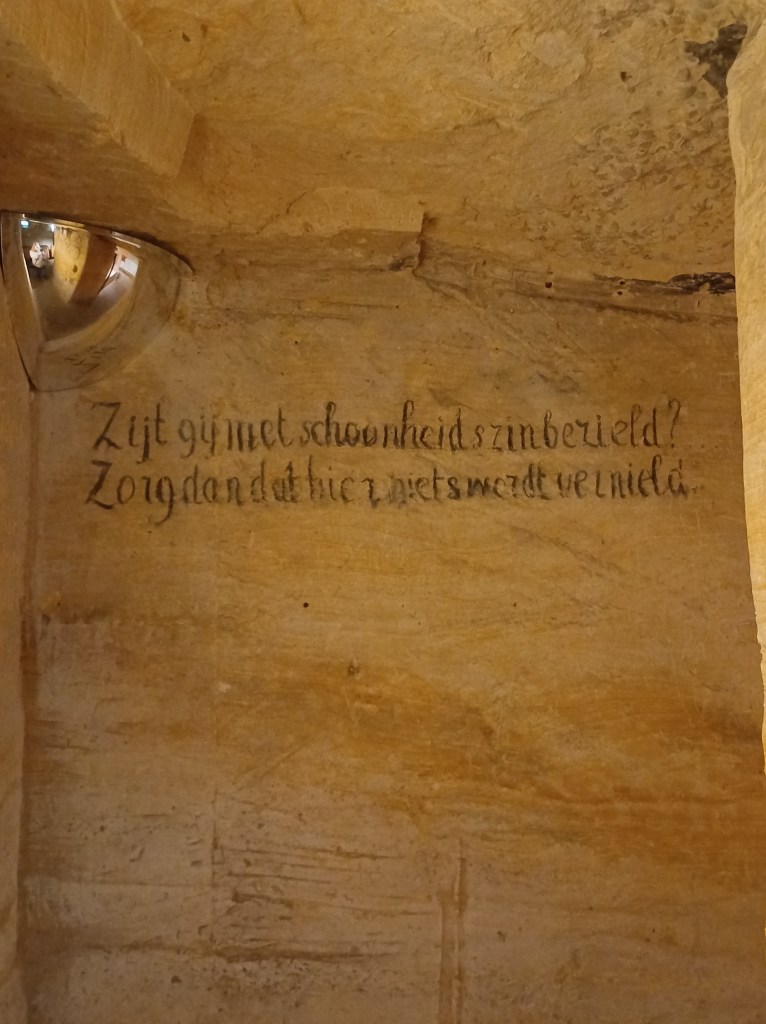 Zijt gij met schoonheidszin bezield?
Zorg dan dat hier niets werdt vernield.